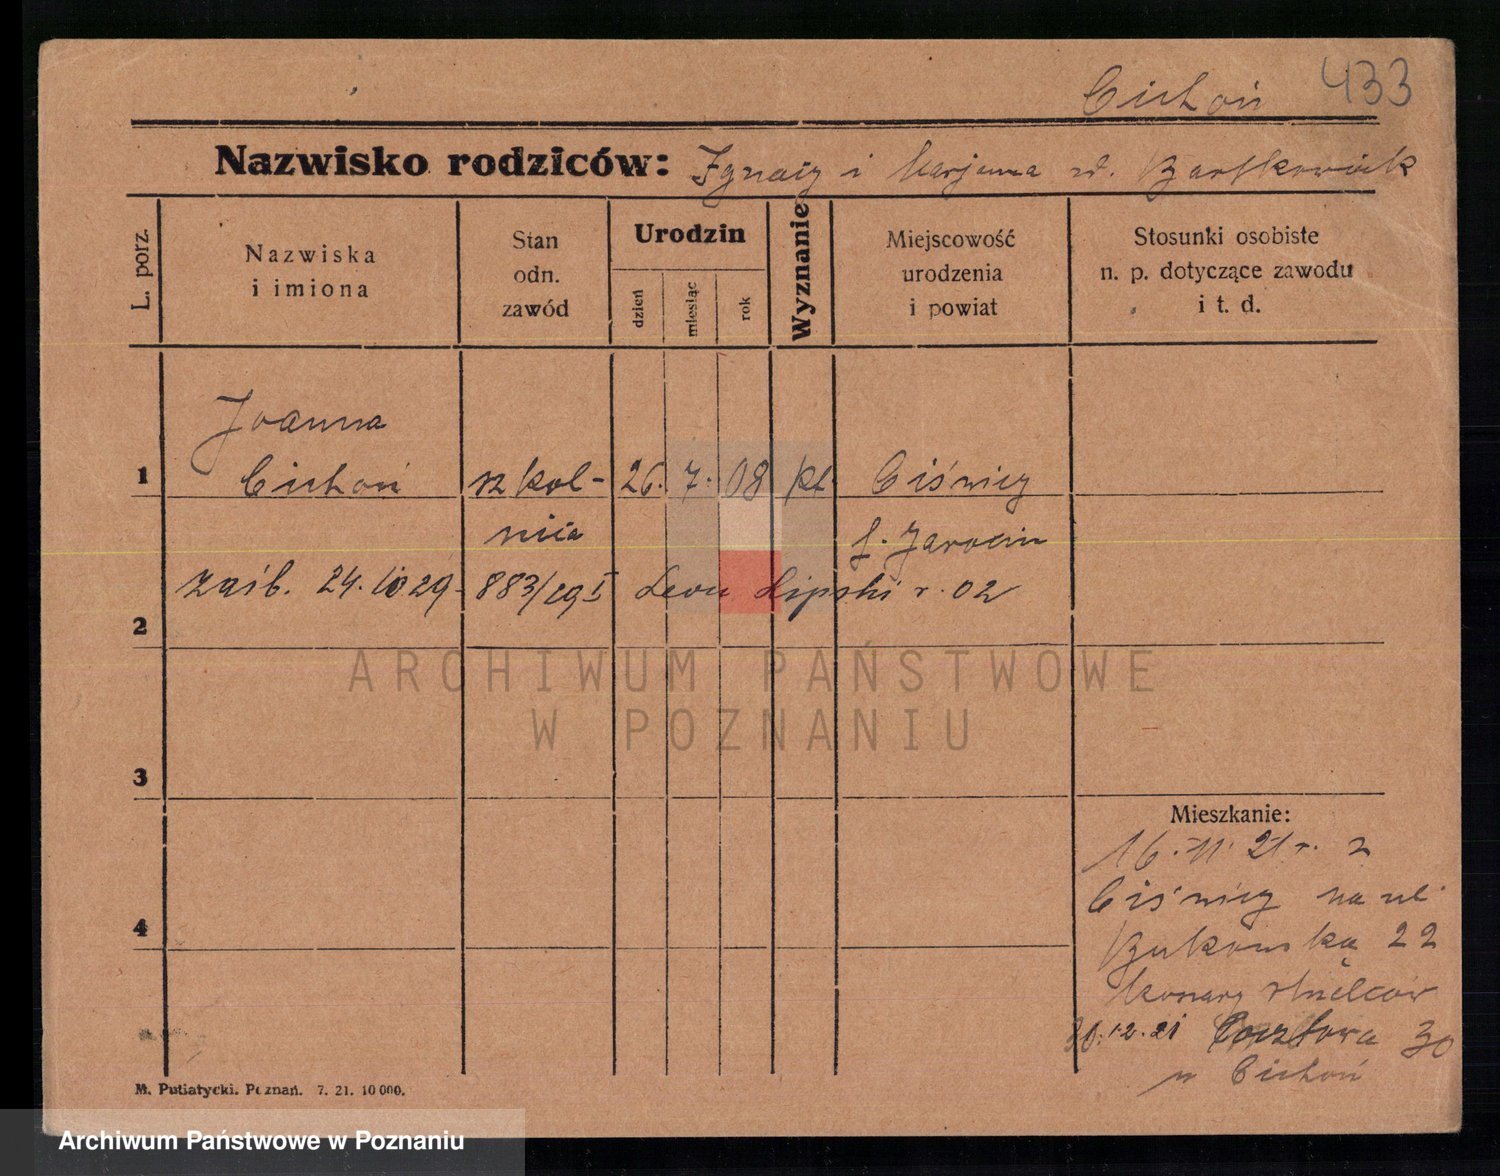 Cichoń 433
Nazwisko rodziców: Ignacy i Marjanna zd. Bartkowiak
L. porz.
Nazwiska
i imiona
Stan
odn.
zawód
Urodzin
dzień
miesiąc
rok
Wyznanie
Miejscowość
urodzenia
i powiat
Stosunki osobiste
n. p. dotyczące zawodu
i t. d.
Joanna
1 Cichoń szkol- 26. 7. 08 kt. Ciświcy
nica f. Jarocin
zaśb. 24. 10 29 883/29 I Leon Lipski r. 02
2
ARCHIWUM PAŃSTWOWE
W POZNANIU
3
Mieszkanie:
16. 11. 21 r. z
Ciświcy na ul.
4
Bukowska 22
30. 12. 21 Pocztowa 30
u Cichoń
M. Putiatycki. Poznań. 7. 21. 10 000.
Archiwum Państwowe w Poznaniu